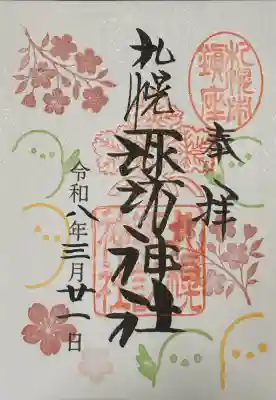 奉拝
札幌諏訪神社
令和八年三月廿一日
札幌市
鎮座